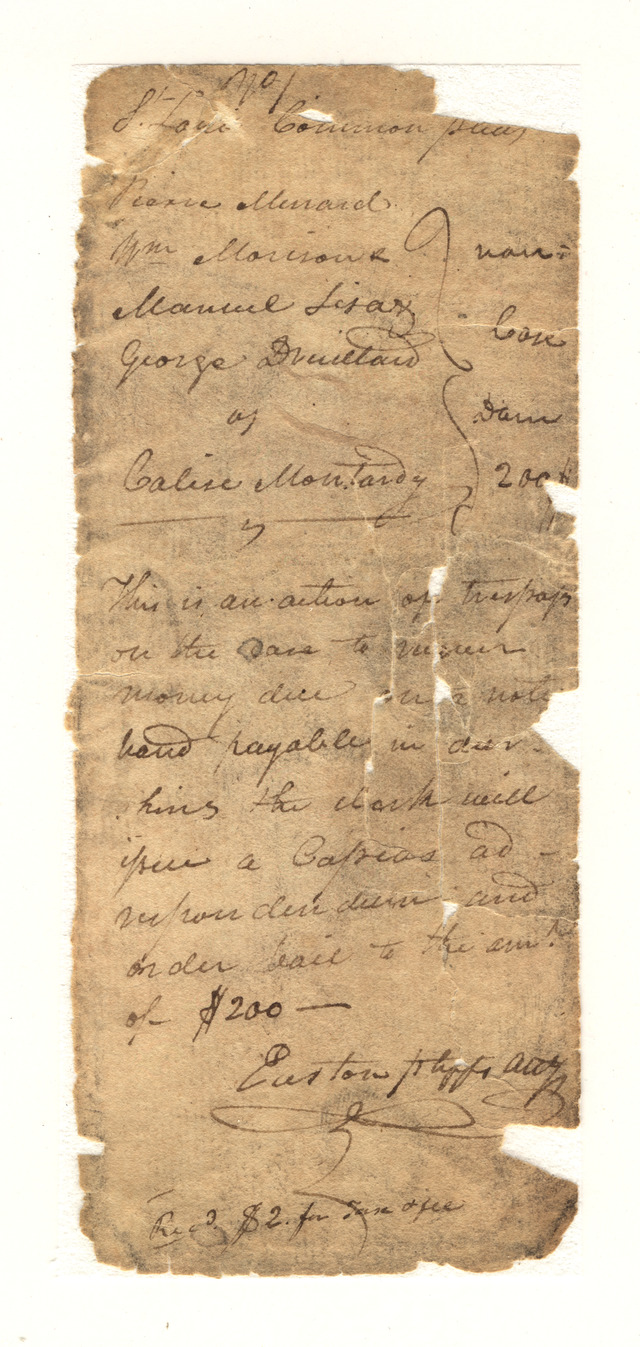 St. Louis Common pleas
Pierre Menard
Wm Morison &
Manuel Lisa &
George Druillard
vs
Calise Montardy
Case
Dam
200
This is an action of trespass
on the case to recover
money due on a note
hand payable in deer
skins the clerk will
issue a Capias ad
respondendum and
order bail to the amt.
of $200 —
Easton pltffs atty
Recd. $2. for